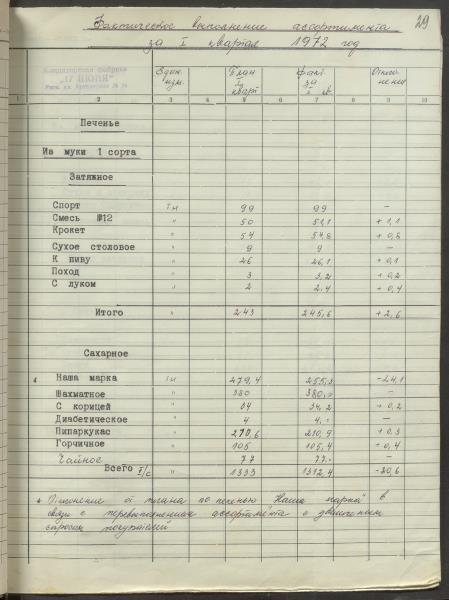 29
Фактическое выполнение ассортимента
за I квартал 1972 год
Кондитерская фабрика
"17 ИЮЛИ"
Един. изм. План I кварт. факт за I кв. Откло нения
1 2 3 4 5 6 7 8 9 10
Печенье
Из муки 1 сорта
Затяжное
Спорт Тн 99 99 –
Смесь №12 " 50 51,1 + 1,1
Крокет " 54 54,8 + 0,8
Сухое столовое " 9 9 –
К пиву " 26 26,1 + 0,1
Поход " 3 3,2 + 0,2
С луком " 2 2,4 + 0,4
Итого " 243 245,6 + 2,6
Сахарное
Наша марка Тн 479,4 455,3 -24,1
Шахматное " 380 380,- –
С корицей " 34,2 + 0,2
Диабетическое " 4 4,- –
Пипаркукас " 210,9 + 0,3
Горчичное " 105 105,4 + 0,4
Чайное 77 77,- –
Всего I/с " 1333 1312,4 -20,6
* Отклонение от плана по печенью "Наша марка" в
связи с перевыполнением ассортимента с
спросом покупателей